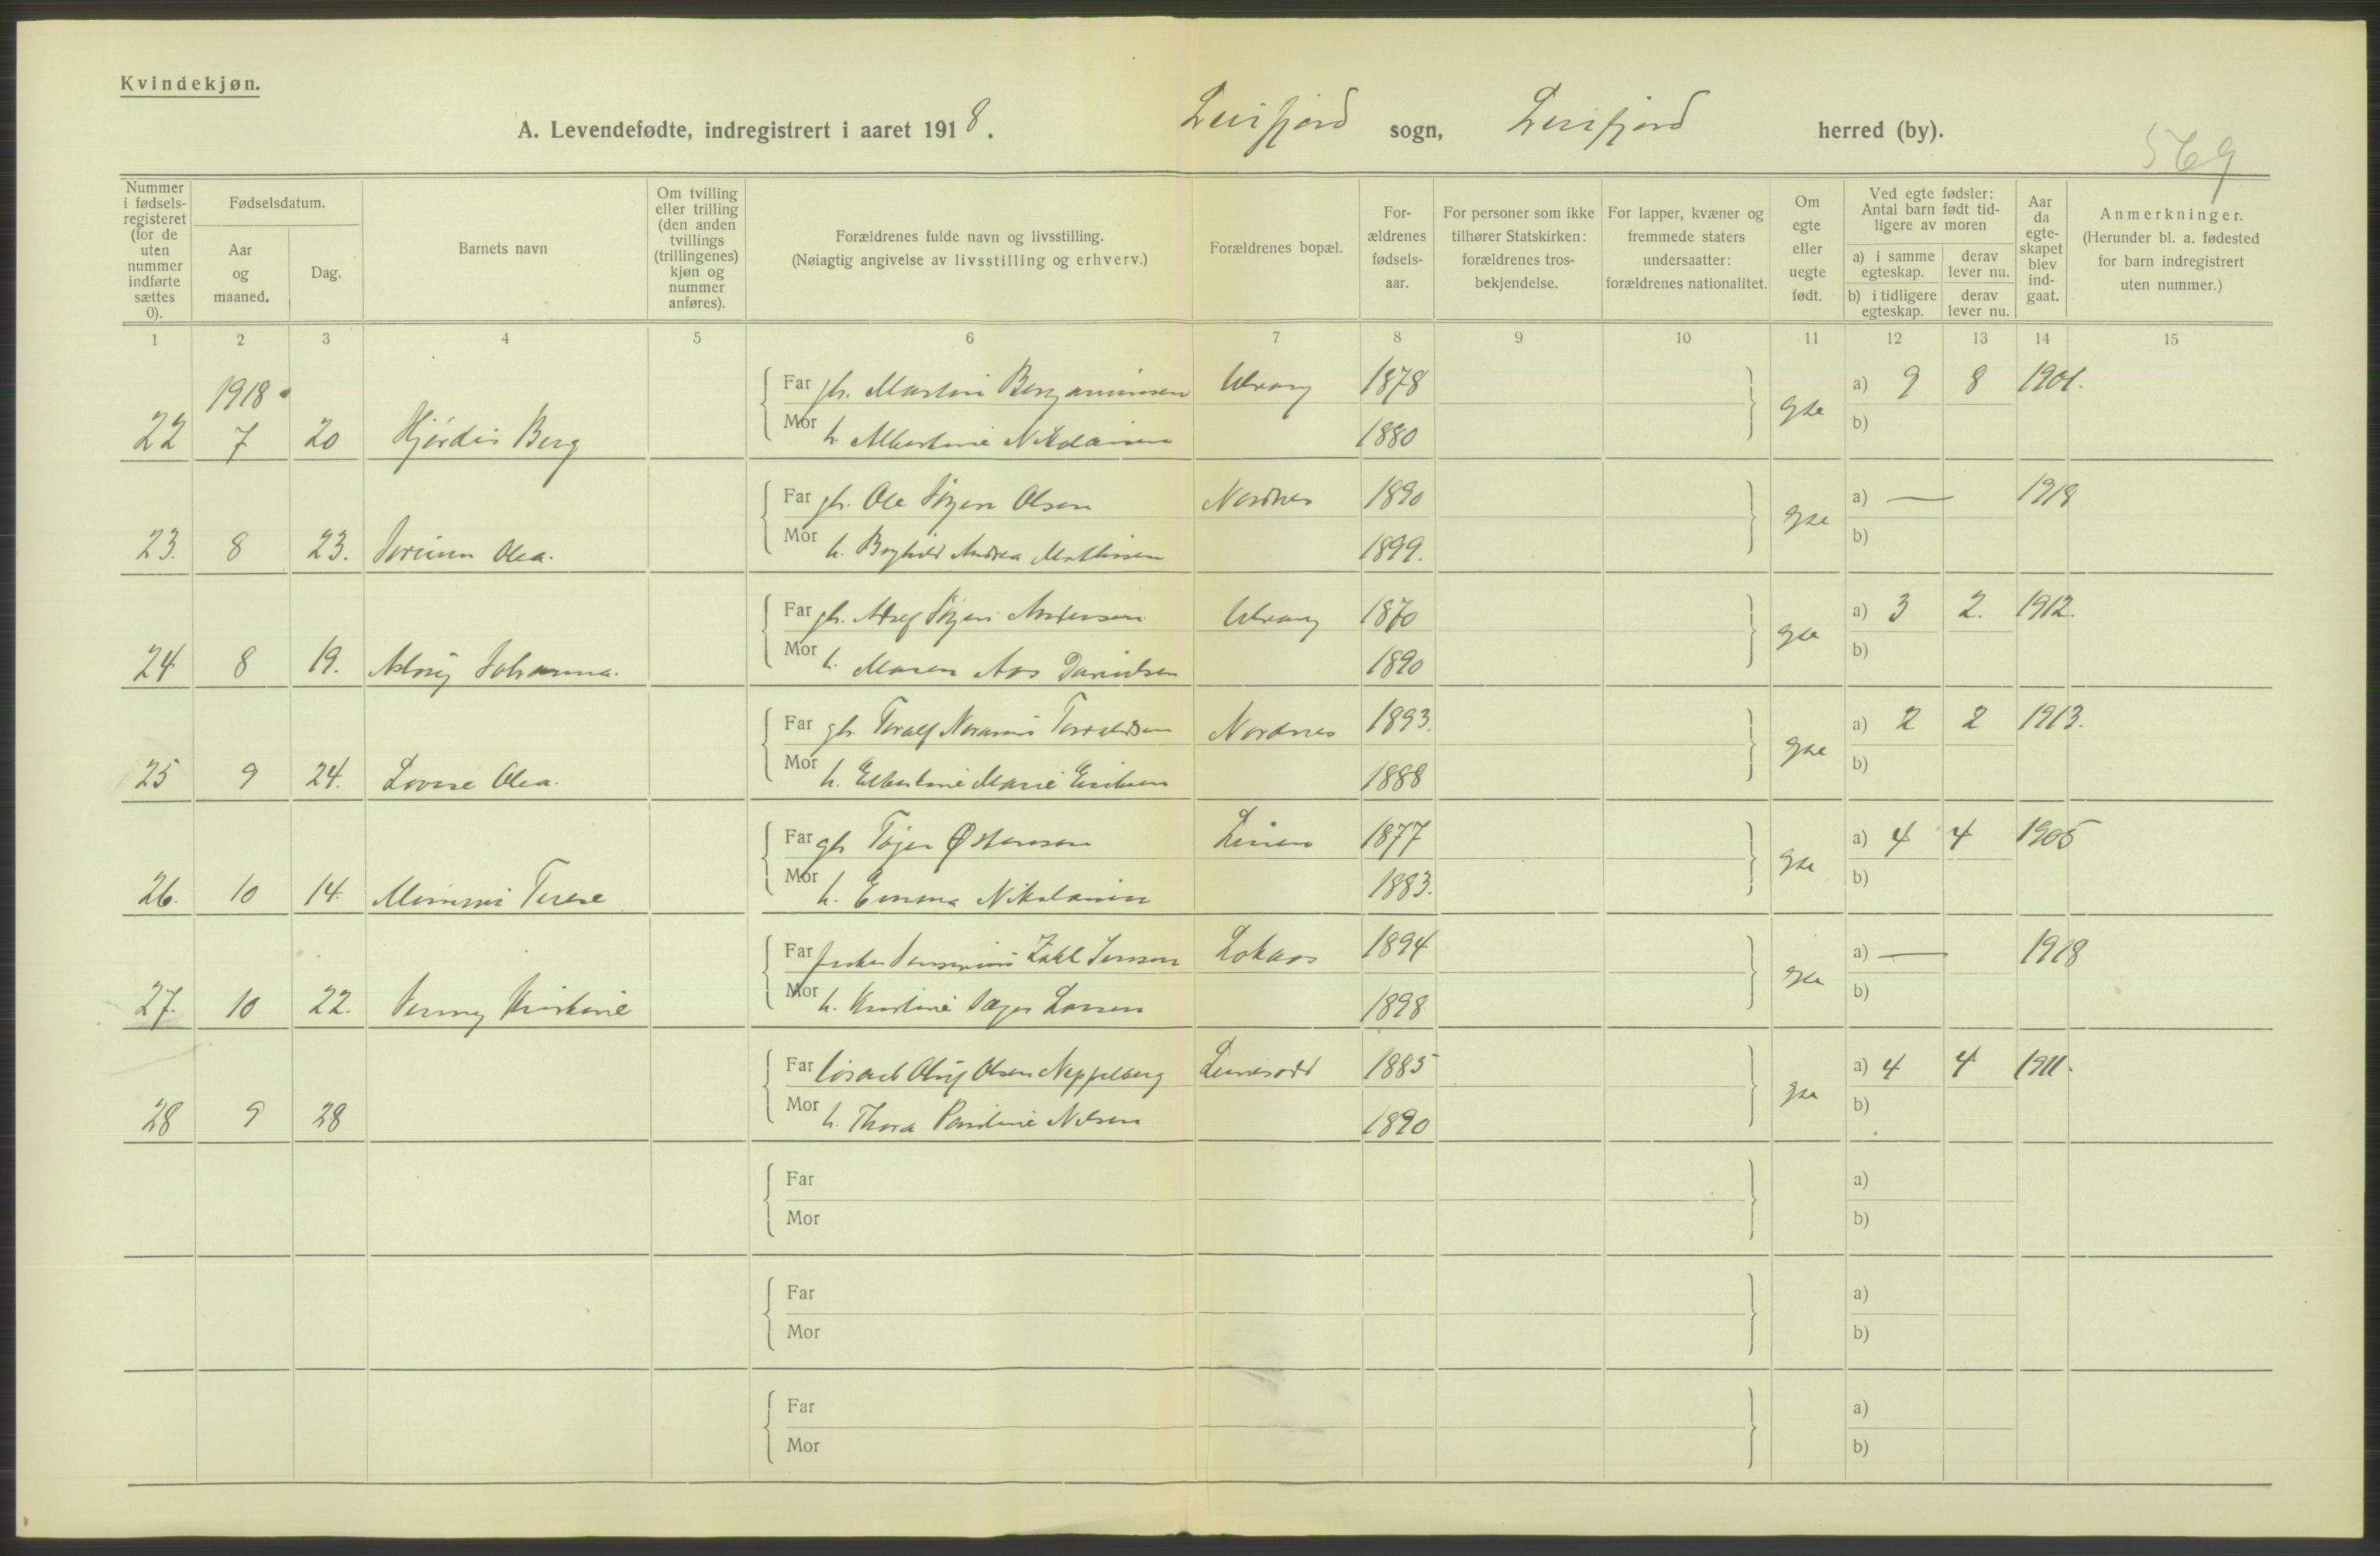 Kvindekjøn.
A. Levendefødte, indregistrert i aaret 1918. Leirfjord sogn, Leirfjord herred (by).
569
Nummer i fødselsregisteret (for de uten nummer indførte sættes 0).
Fødselsdatum.
Aar og maaned.
Dag.
Barnets navn
Om tvilling eller trilling (den anden tvillings (trillingenes) kjøn og nummer anføres).
Forældrenes fulde navn og livsstilling.
(Nøiagtig angivelse av livsstilling og erhverv.)
Forældrenes bopæl.
Forældrenes fødselsaar.
For personer som ikke tilhører Statskirken: forældrenes trosbekjendelse.
For lapper, kvæner og fremmede staters undersaatter: forældrenes nationalitet.
Om egte eller uegte født.
Ved egte fødsler: Antal barn født tidligere av moren
a) i samme egteskap.
derav lever nu.
b) i tidligere egteskap.
derav lever nu.
Aar da egteskapet blev indgaat.
Anmerkninger.
(Herunder bl. a. fødested for barn indregistrert uten nummer.)
1 2 3 4 5 6 7 8 9 10 11 12 13 14 15
1918
Far gbr. Martin Benjaminsen 1878 a) 9 8 1901.
22 7 20 Hjørdis Berg Mor h. Albertine Nikolaisen 1880 gte b)
Far gbr. Ole Jørgen Olsen Nordnes 1890 a) — 1918
23. 8 23. Jorunn Olea. Mor h. Borghild Andrea Mathisen 1899. gte b)
Far gbr. Adolf Jørgen Andersen 1870 a) 3 2. 1912.
24 8 19. Aslaug Johanna. Mor h. Maren Danielsen 1890 gte b)
Far gbr. Toralf Torvaldsen Nordnes 1893. a) 2 2 1913.
25 9 24. Lovise Olea. Mor h. Elbertine Marie Eriksen 1888 gte b)
Far gbr Tøger Østensen Leines 1877 a) 4 4 1905
26. 10 14. Mimmi Terese Mor h. Emma Nikolaisen 1883. gte b)
Far fisker Zahl Jensen 1894 a) — 1918
27. 10 22. Jenny Kristine Mor h. Kristine Larsen 1898 gte b)
Far Olsen Neppelberg Leinesodd 1885 a) 4 4 1911.
28 9 28 Mor h. Thora Pauline Nilsen 1890 gte b)
Far a)
Mor b)
Far a)
Mor b)
Far a)
Mor b)